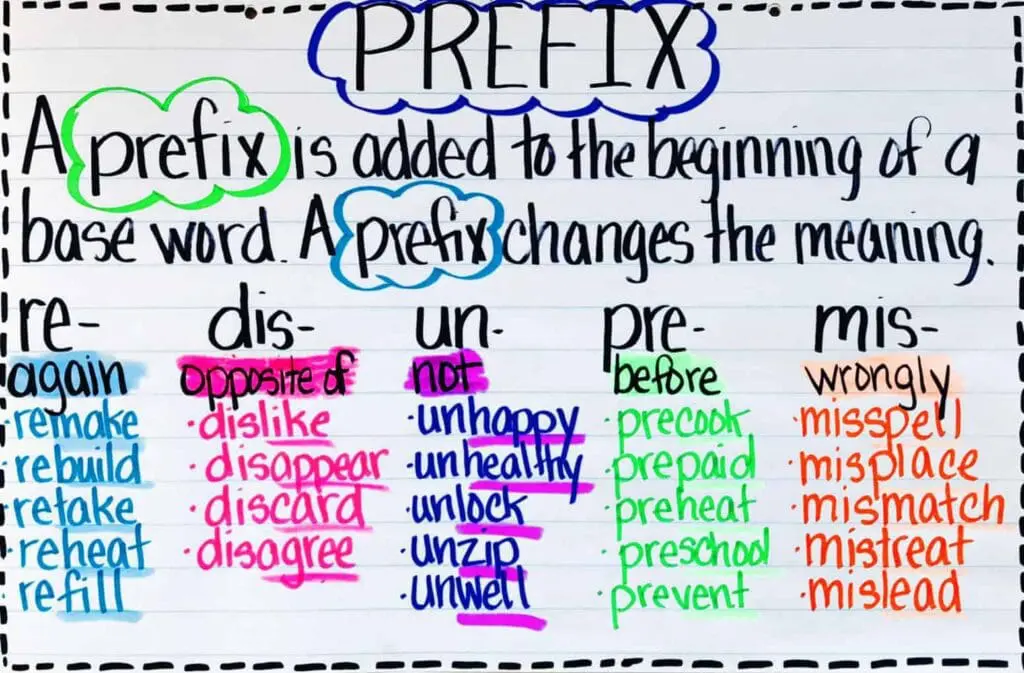 PREFIX
A prefix is added to the beginning of a
base word. A prefix changes the meaning.
re- dis- un- pre- mis-
again opposite of not before wrongly
remake •dislike •unhappy •precook •misspell
rebuild •disappear •unhealthy •prepaid •misplace
retake •discard •unlock •preheat •mismatch
•reheat •disagree •unzip •preschool •mistreat
refill •unwell •prevent •mislead